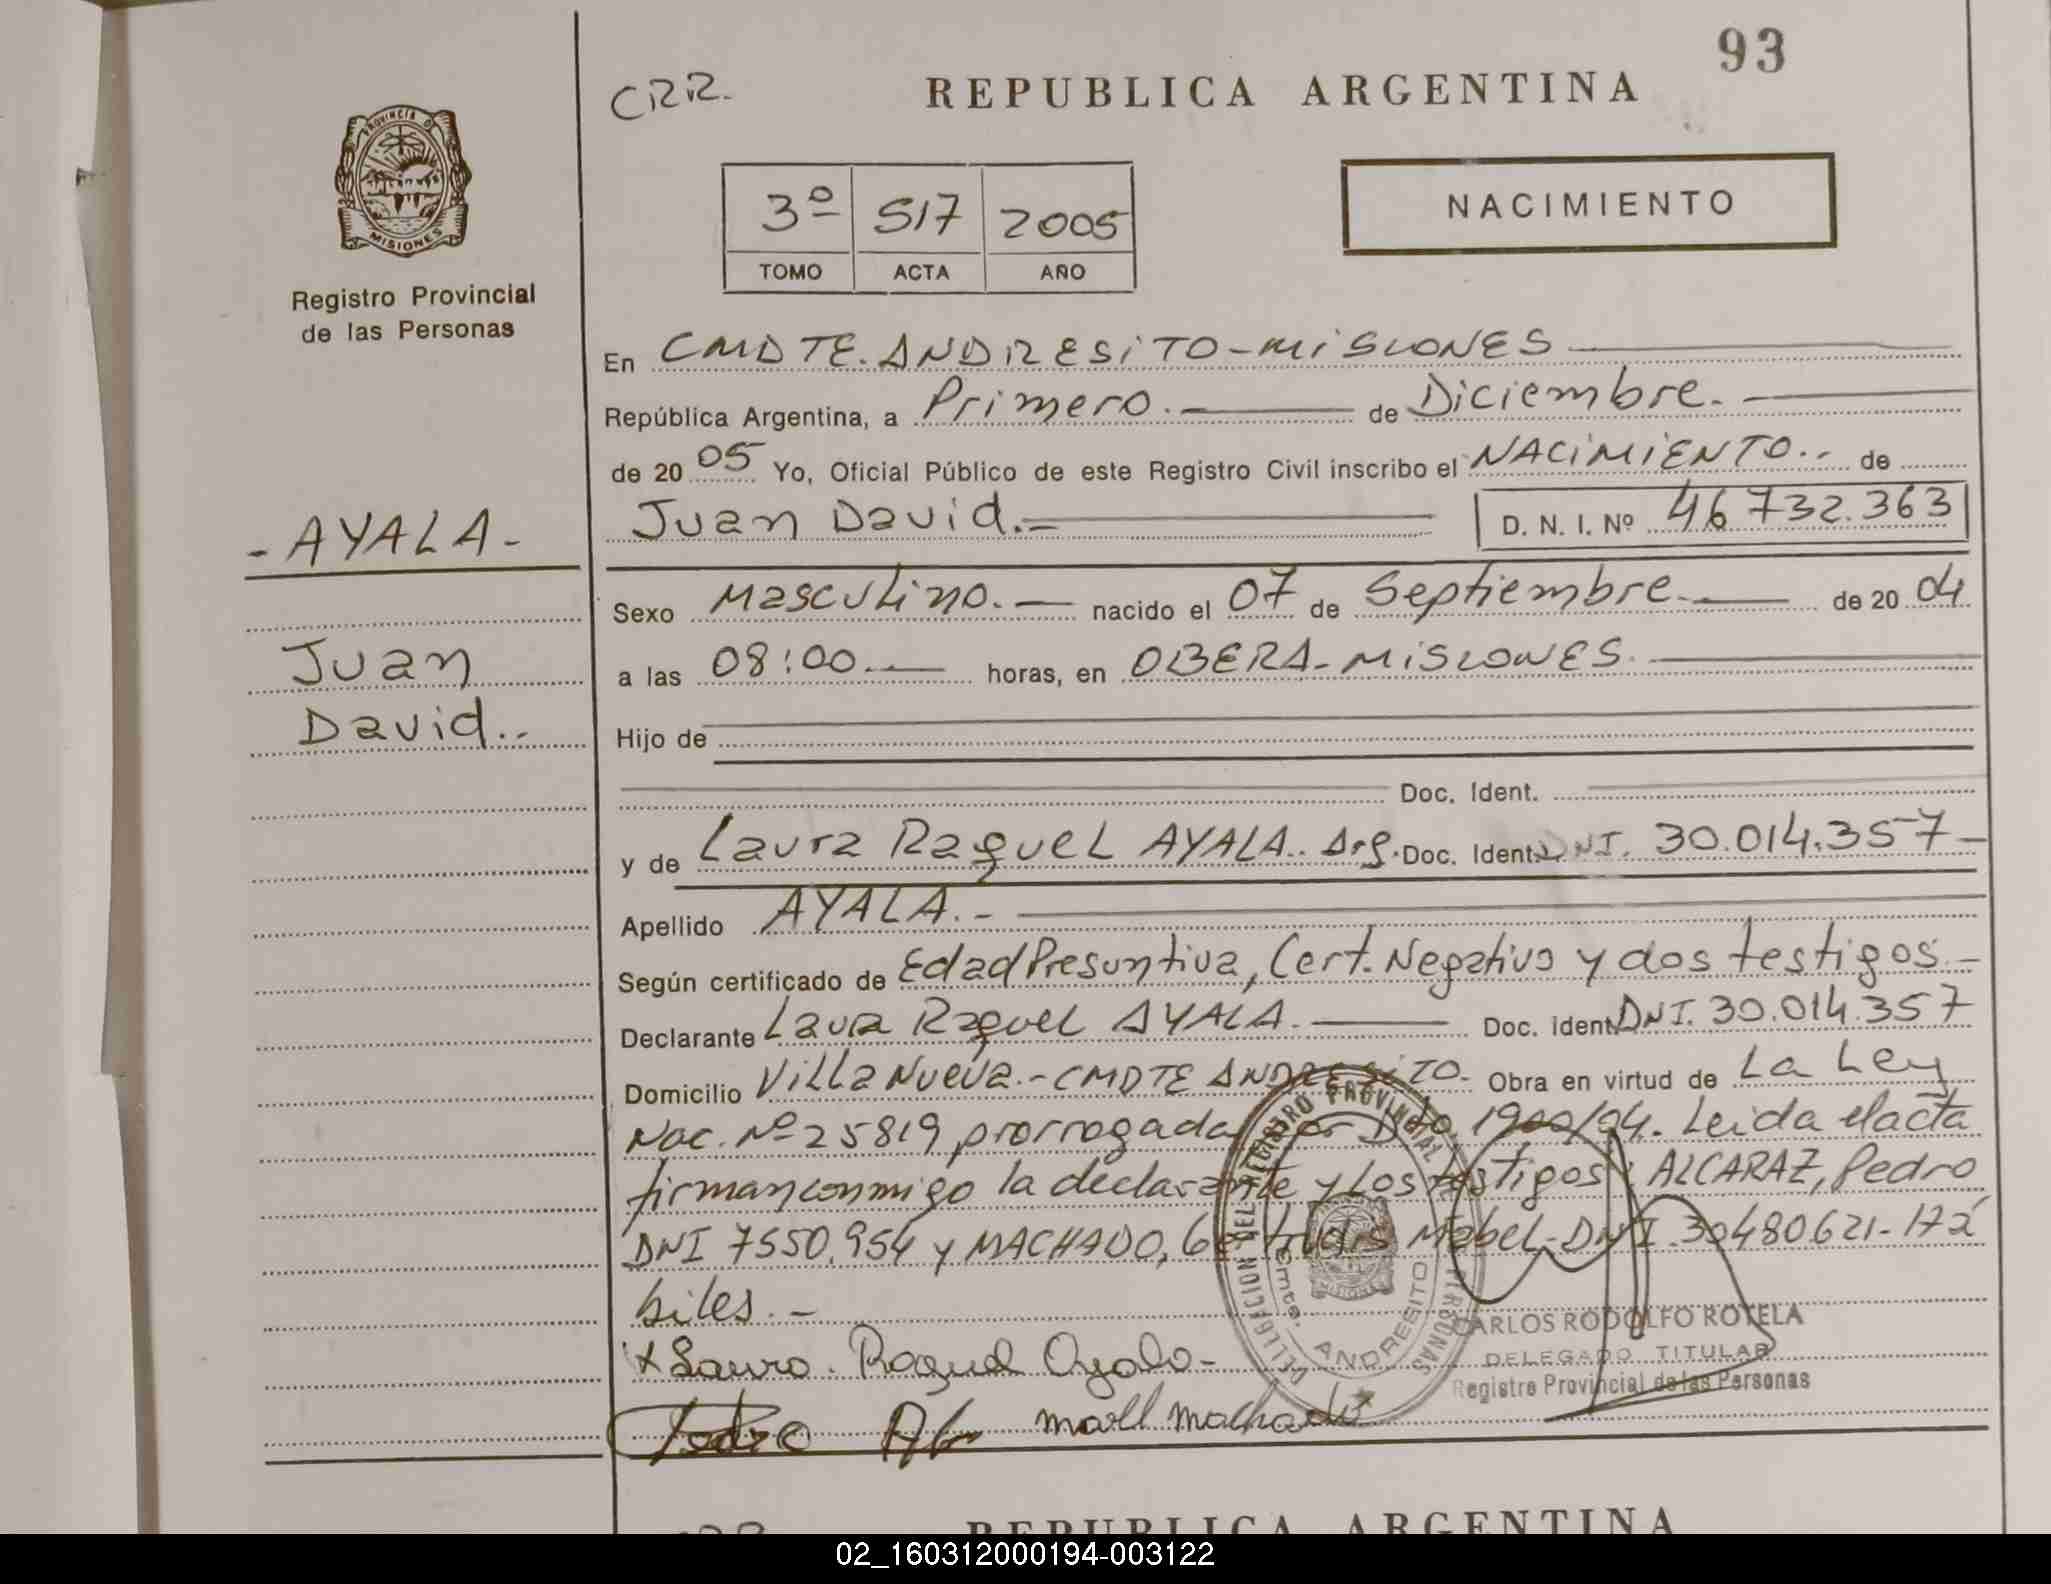 93
CRR.
REPUBLICA ARGENTINA
PROVINCIA D
MISIONES
Registro Provincial
de las Personas
3º 517 2005
TOMO ACTA AÑO
NACIMIENTO
En CMDTE. ANDRESITO-MISIONES
República Argentina, a Primero. de Diciembre.
de 20 05 Yo, Oficial Público de este Registro Civil inscribo el NACIMIENTO.. de
Juan David.- D. N. I. Nº 46732.363
-AYALA-
Juan
David..
Sexo Masculino. nacido el 07 de Septiembre. de 20 04
a las 08:00. horas, en OBERA-MISIONES.
Hijo de
Doc. Ident.
y de Laura Raquel AYALA.. Arg. Doc. Ident. DNI. 30.014.357-
Apellido AYALA.-
Según certificado de Edad Presuntiva, Cert. Negativo y dos testigos.-
Declarante Laura Raquel AYALA. Doc. ident. DNI. 30.014.357
Domicilio Villa Nueva.-CMDTE ANDRESITO. Obra en virtud de La Ley
Nac. Nº 25819 prorrogada por Dto 1900/04. Leida el acta
firman conmigo la declarante y los testigos: ALCARAZ, Pedro
DNI 7550.954 y MACHADO, Mabel-DNI.30480621-
biles.-
x Laura. Raquel Ayala-
Pedro
machado
REGISTRO PROVINCIAL
PERSONAS
Cmte. ANDRESITO
MISIONES
CARLOS RODOLFO ROTELA
DELEGADO TITULAR
Registro Provincial de las Personas
REPUBLICA ARGENTINA
02_160312000194-003122